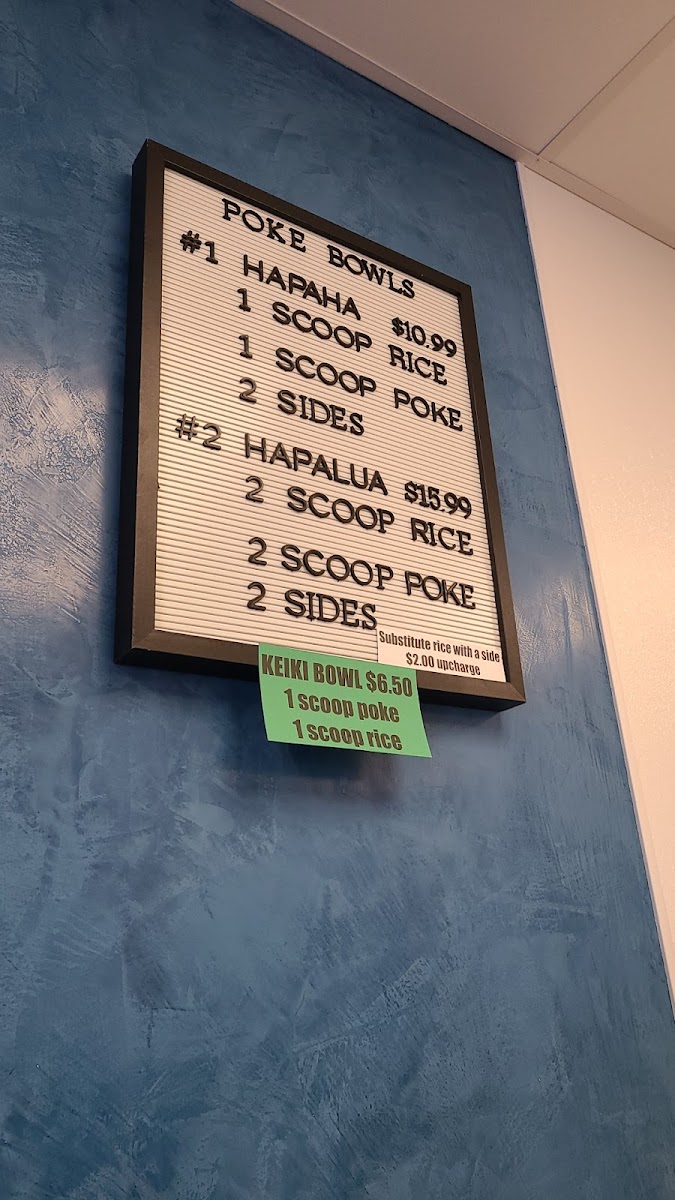 POKE BOWLS
#1 HAPAHA $10.99
1 SCOOP RICE
1 SCOOP POKE
2 SIDES
#2 HAPALUA $15.99
2 SCOOP RICE
2 SCOOP POKE
2 SIDES
Substitute rice with a side
$2.00 upcharge
KEIKI BOWL $6.50
1 scoop poke
1 scoop rice